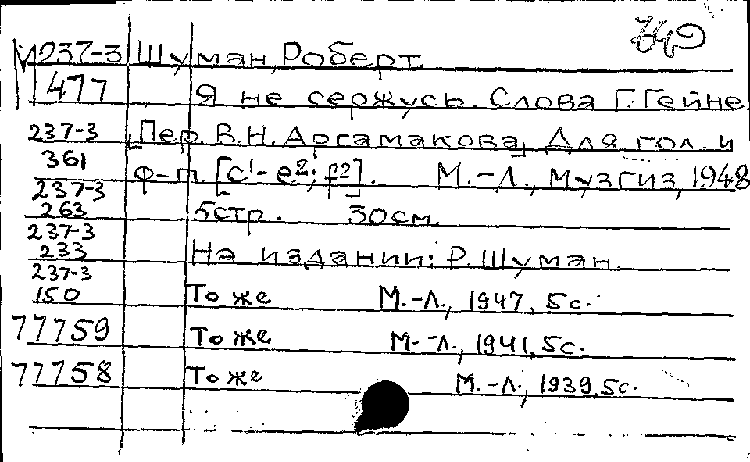 М237-3 Шуман, Роберт
477 Я не сержусь. Слова Г. Гейне
237-3 [Пер. В.Н. Аргамакова]. Для гол. и
361 ф-п. [c¹-e²; g²]. М.-Л., Музгиз, 1948
237-3
263 5стр. 30см.
237-3
233 На издании: Р. Шуман.
237-3
150 То же М.-Л., 1947, 5с.
77759 То же М.-Л., 1941, 5с.
77758 То же М.-Л., 1939, 5с.